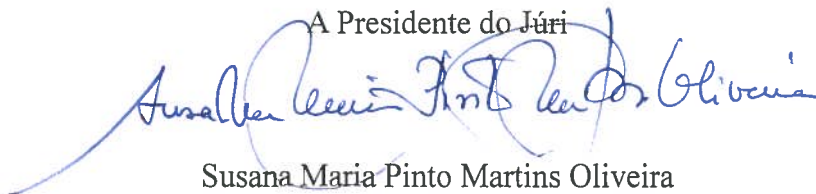 A Presidente do Júri
Susana Maria Pinto Martins Oliveira
Susana Maria Pinto Martins Oliveira